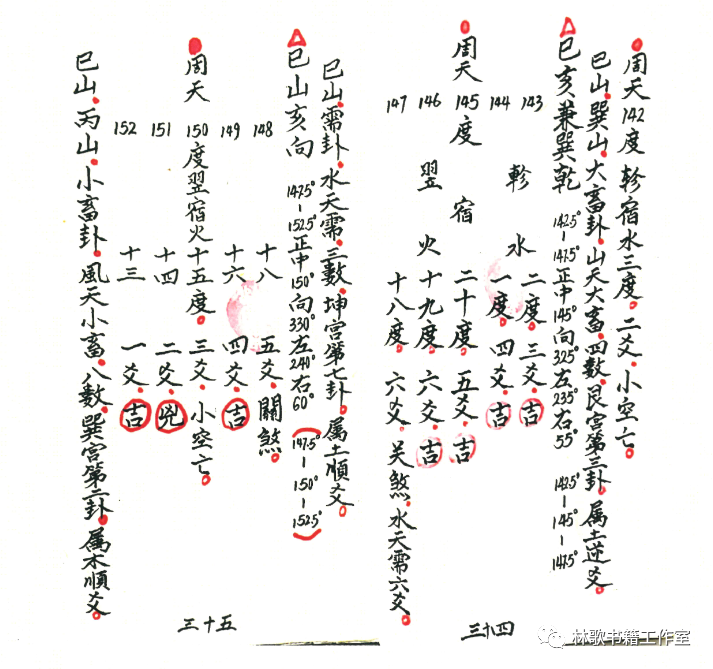 周天142度軫宿水三度。二爻。小空亡。
巳山。巽山。大畜卦。山天大畜。四數。艮宮第三卦。属土逆爻。
巳亥兼巽乾 142.5°-147.5°正中145°向325°左235°右55° 142.5°-145°-147.5°
143 二度。三爻。吉
144 軫水 一度。四爻。吉
周天145度 宿 二十度。五爻。吉
146 翌火 十九度。六爻。吉
147 十八度。六爻。关煞。水天需六爻。
三十四
巳山。需卦。水天需。三數。坤宮第七卦。属土順爻。
巳山亥向 147.5°-152.5°正中150°向330°左240°右60° (147.5°-150°-152.5°)
148 十八 五爻。關煞。
149 十六 四爻。吉
周天150度翌宿火十五度。三爻。小空亡。
151 十四 二爻。兇
152 十三 一爻。吉
巳山。丙山。小畜卦。風天小畜。八數。巽宮第二卦。属木順爻。
三十五
林歌书籍工作室